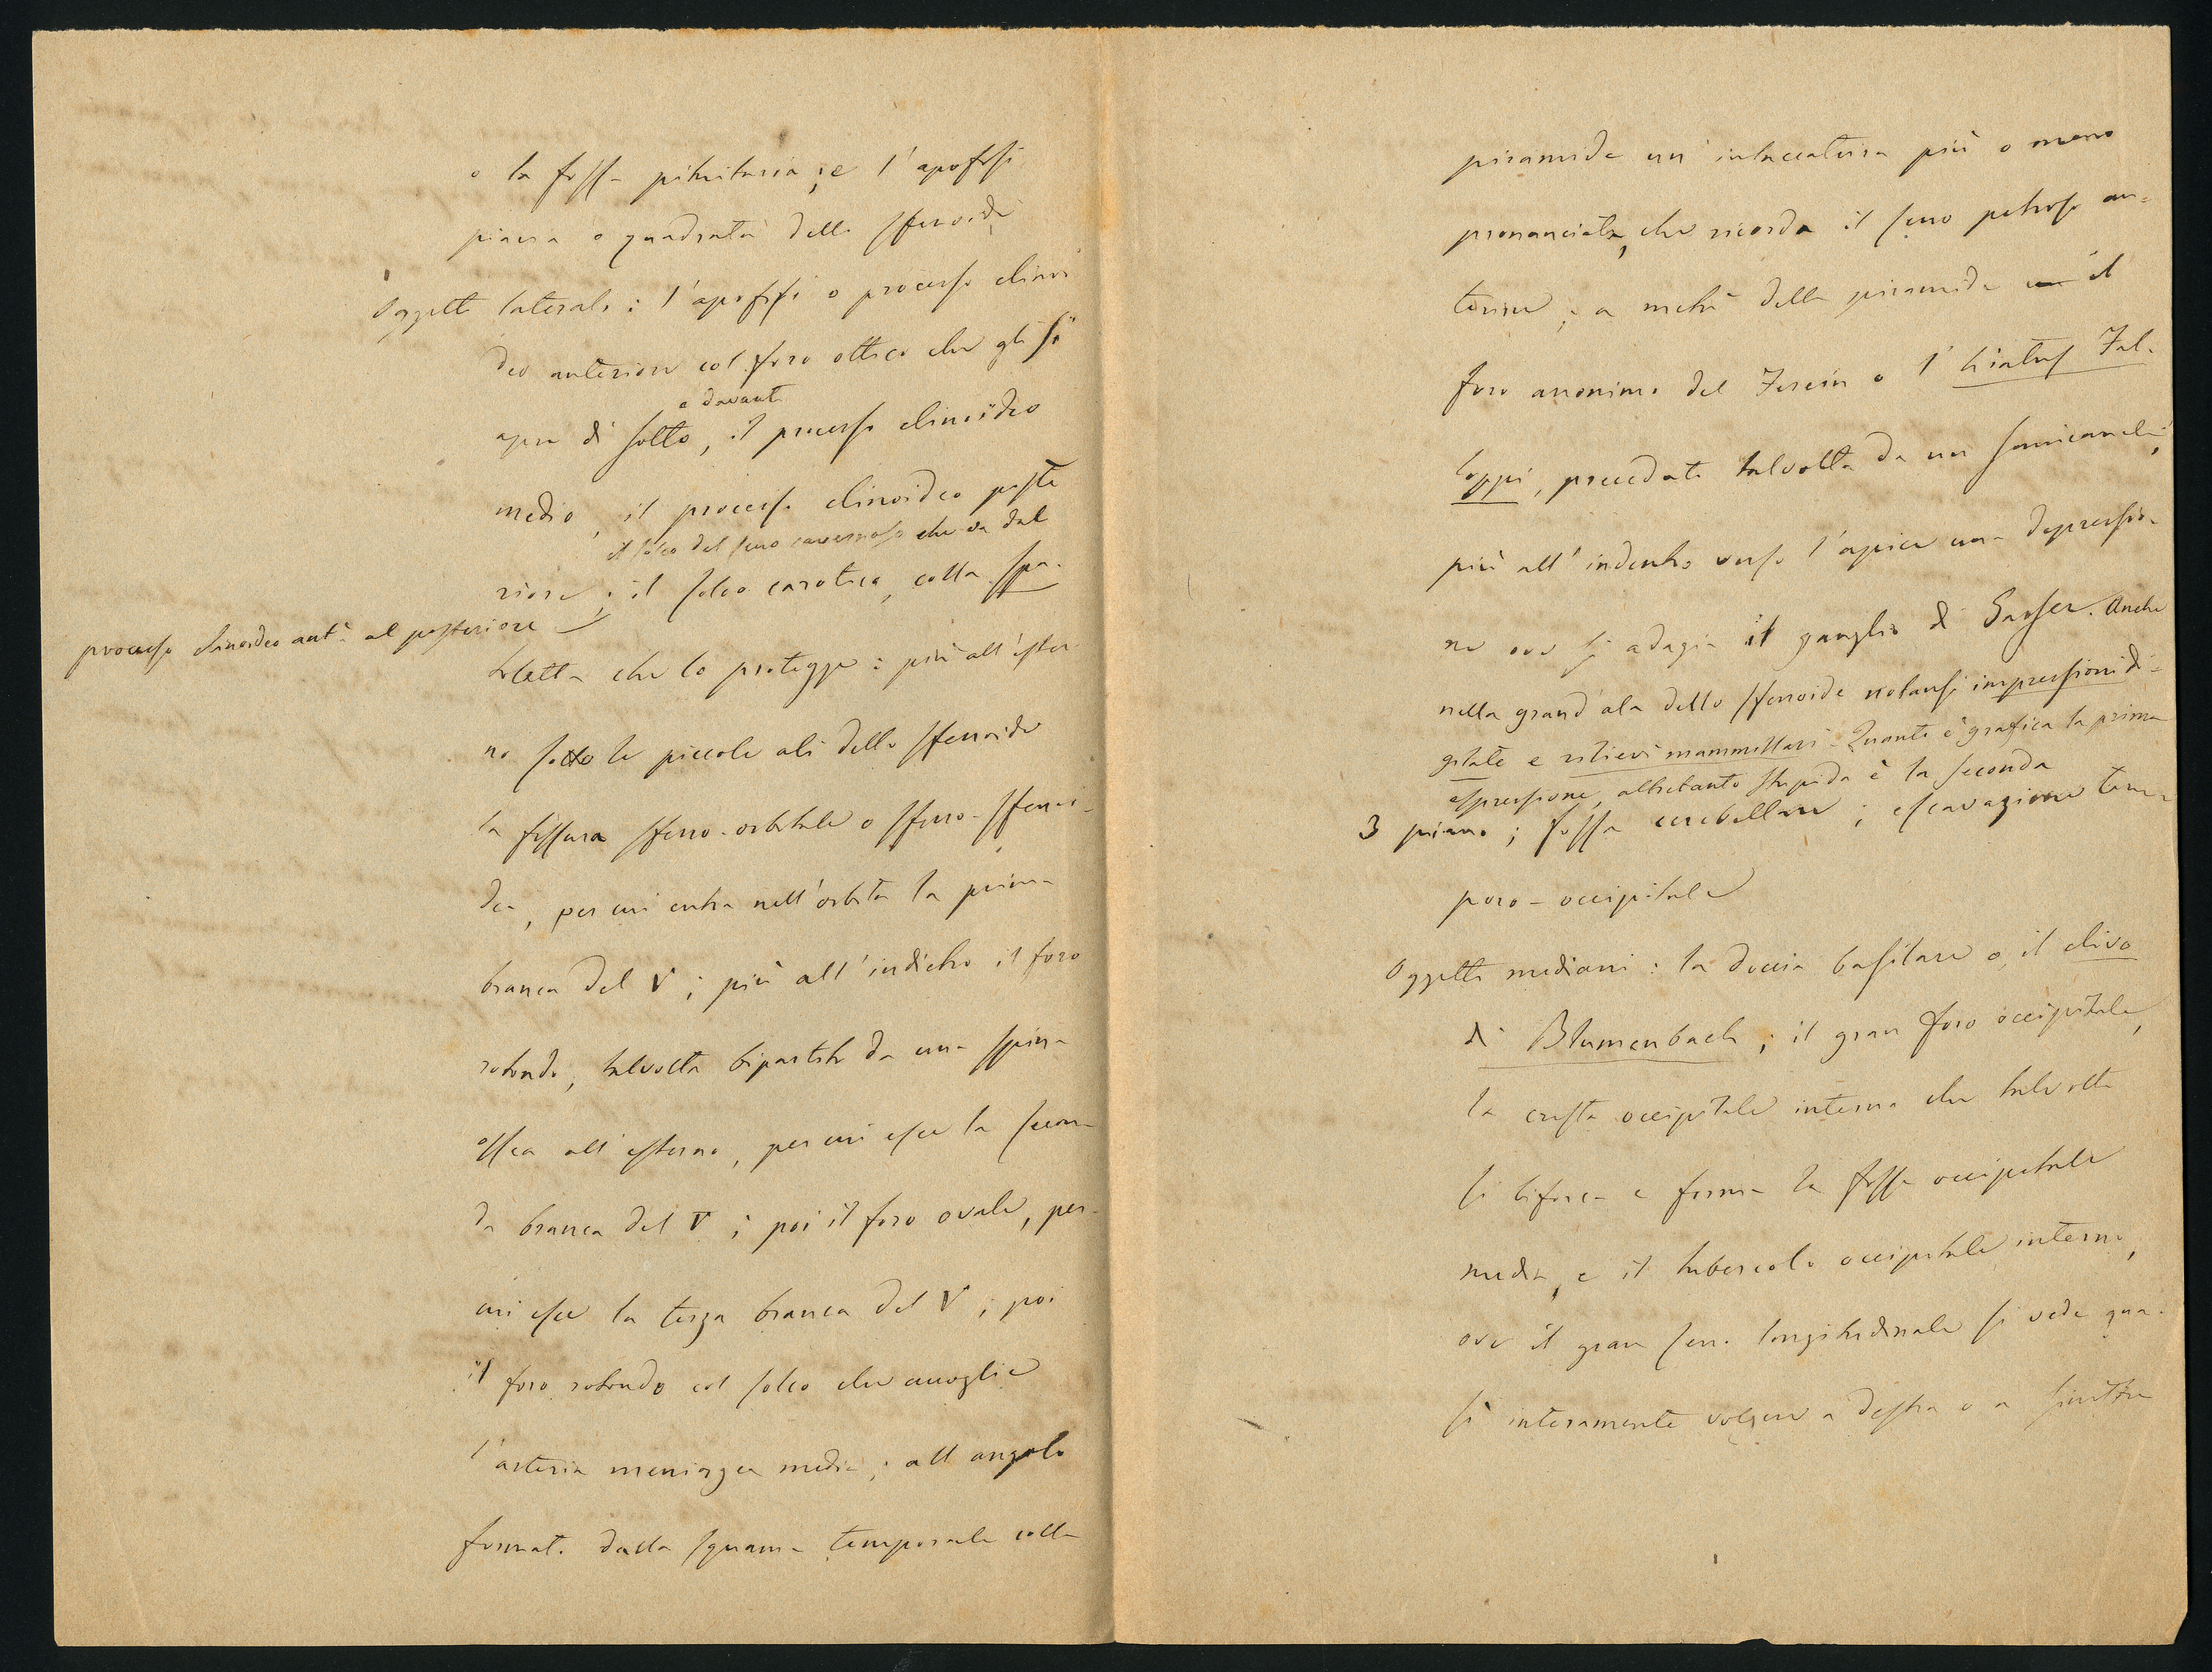 o la fossa pituitaria; e l'apofisi
piana o quadrata dello sfenoide
Oggetti laterali: l'apofisi o processo clinoi
deo anteriore col foro ottico che gli si
e davanti
apre di sotto, il processo clinoideo
medio, il processo clinoideo poste
il solco del seno cavernoso che va dal
riore; il solco carotico, colla spa-
processo clinoideo ant.e al posteriore
toletta che lo protegge: più all'ester
no sotto le piccole ali dello sfenoide
la fissura sfeno-orbitale o sfeno-sfenoi-
dea, per cui entra nell'orbita la prima
branca del V; più all'indietro il foro
rotondo, talvolta bipartito da una spina
ossea all'esterno, per cui esce la secon-
da branca del V; poi il foro ovale, per
cui esce la terza branca del V; poi
il foro rotondo col solco che accoglie
l'arteria meningea media; all'angolo
formato dalla squama temporale colla
piramide un'intaccatura più o meno
pronunciata, che ricorda il seno petroso an-
teriore; a metà della piramide il
foro anonimo del Ferein o l'hiatus Fal-
loppi, preceduto talvolta da un semicanale;
più all'indentro verso l'apice una depressio-
ne ove si adagia il ganglio di Gasser. Anche
nella grand'ala dello sfenoide notansi impressioni di-
gitate e rilievi mammillari. Quanto è grafica la prima
espressione, altrettanto stupida è la seconda
3 piano; fossa cerebellare; escavazione tem-
poro-occipitale
Oggetti mediani: la doccia basilare o il clivo
di Blumenbach; il gran foro occipitale,
la cresta occipitale interna che talvolta
si biforca e forma la fossa occipitale
media, e il tubercolo occipitale interno,
ove il gran seno longitudinale si vede qua-
si interamente volgere a destra o a sinistra